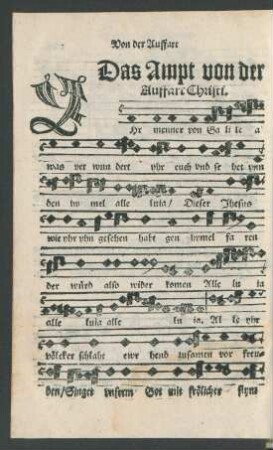 Von der Auffart
Das Ampt von der
Auffart Christi.
Ihr menner von Ga li le a
was ver wun dert yhr euch vnd se het ynn
den hy mel alle luia / Dieser Jhesus
wie yhr yhn gesehen habt gen hymel fa ren
der würd also wider komen Alle lu ia
alle luia alle lu ia. Al le yhr
völcker schlaht ewr hend zusamen vor freu-
den / Singet vnserm Got mit frölicher stym